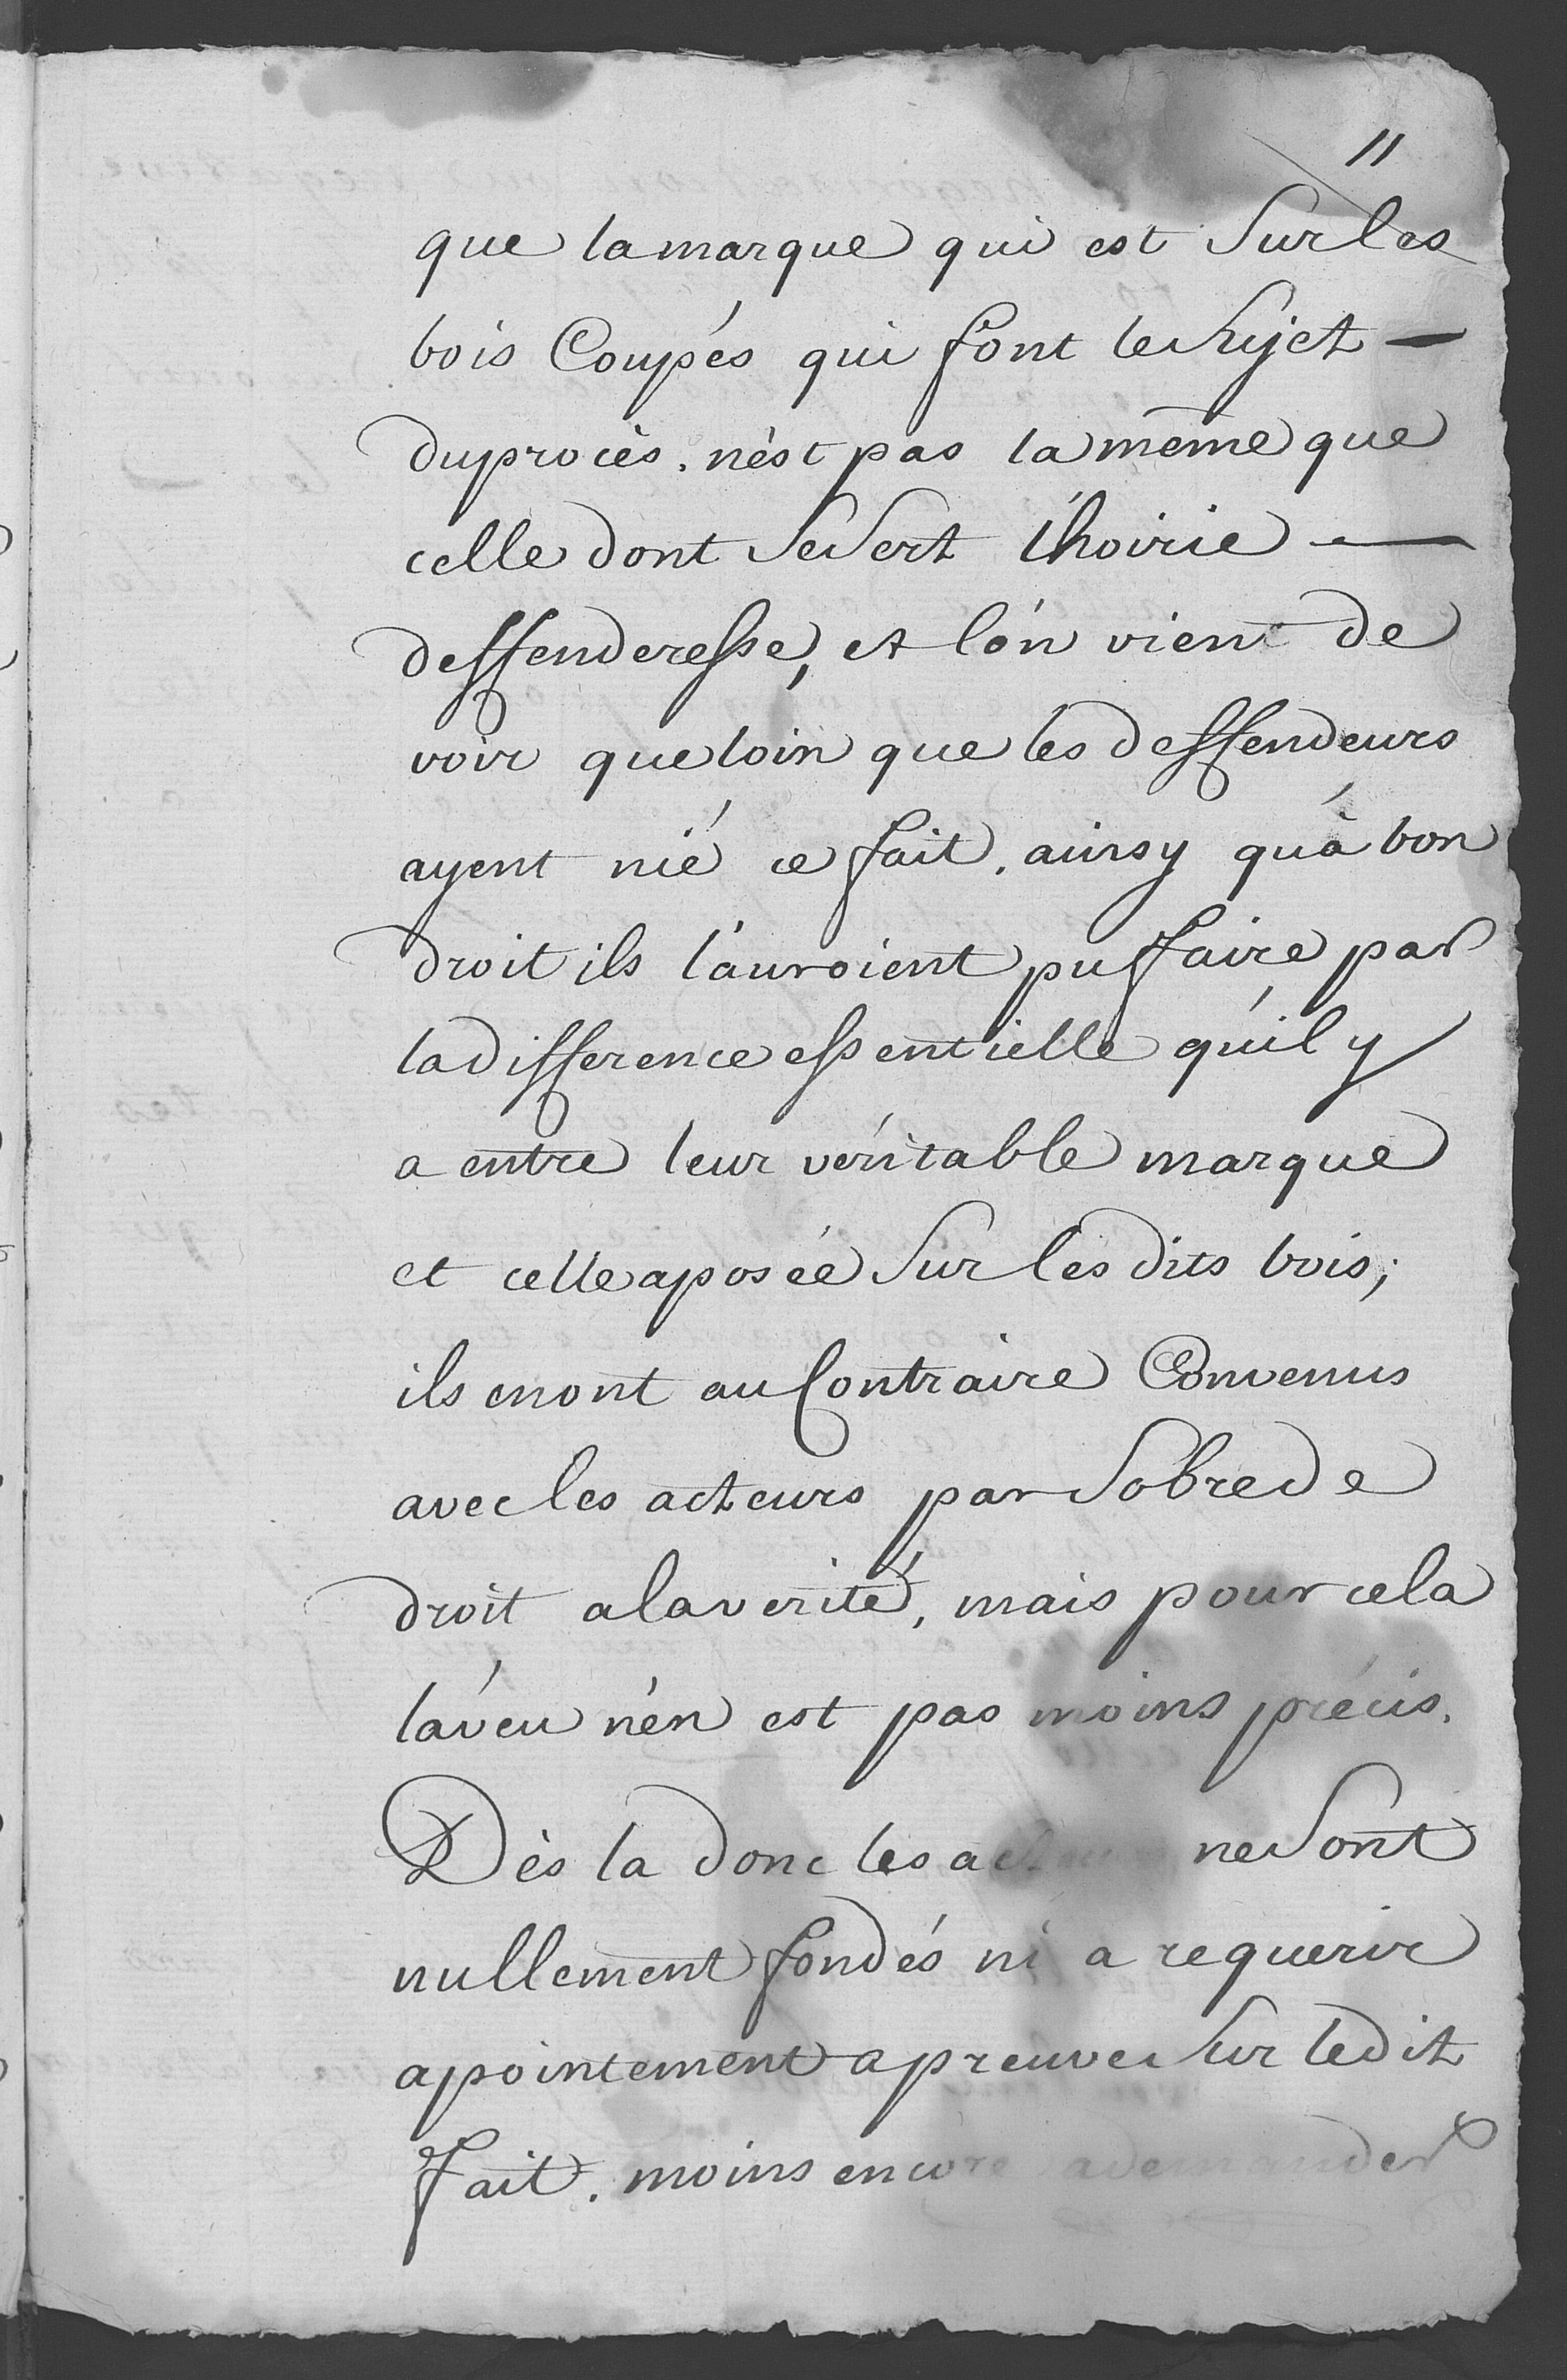 11
que la marque qui est Sur les
bois Coupés qui font le Sujet —
du procès. n'ést pas la même que
celle dont se sert l'hoirie —
deffenderesse, et l'ón vient de
voir que loin que les deffendeurs
ayent nié ce fait, ainsy qu'à bon
droit ils l'auroient pu faire par
la difference essentielle qu'il y
a entre leur véritable marque
et celle aposée Sur les dits bois;
ils en ont au Contraire Convenus
avec les acteurs par Sobre de
droit a la verité, mais pour cela
l'aveu n'én est pas moins précis.
Dès la donc les ne sont
nullement fondés ni a requerir
apointement a preuve Sur ledit
fait. moins encore a demander